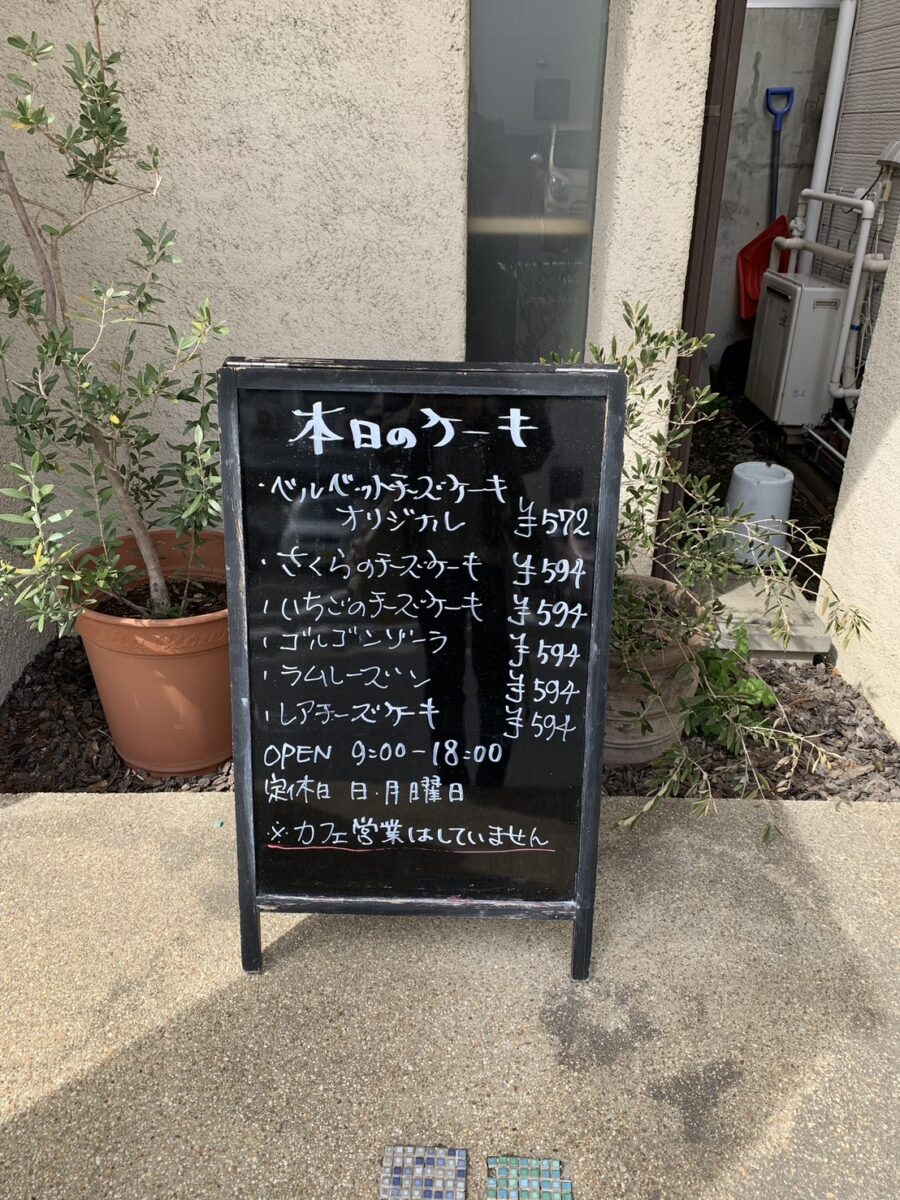 本日のケーキ
・ベルベットチーズケーキ
オリジナル ¥572
・さくらのチーズケーキ ¥594
・いちごのチーズケーキ ¥594
・ゴルゴンゾーラ ¥594
・ラムレーズン ¥594
・レアチーズケーキ ¥594
OPEN 9:00-18:00
定休日 日・月曜日
※カフェ営業はしていません